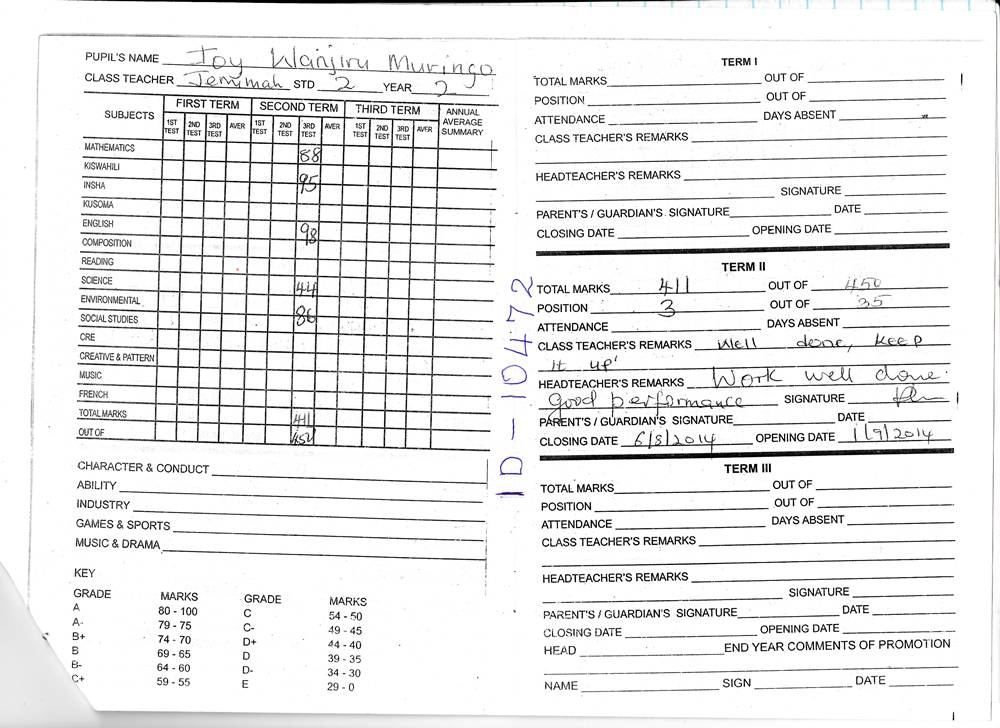 PUPIL'S NAME Joy Wanjiru Muringo
CLASS TEACHER Jemimah STD 2 YEAR 2
SUBJECTS FIRST TERM SECOND TERM THIRD TERM ANNUAL AVERAGE SUMMARY
1ST TEST 2ND TEST 3RD TEST AVER 1ST TEST 2ND TEST 3RD TEST AVER 1ST TEST 2ND TEST 3RD TEST AVER
MATHEMATICS 88
KISWAHILI
INSHA 95
KUSOMA
ENGLISH 98
COMPOSITION
READING
SCIENCE 44
ENVIRONMENTAL
SOCIAL STUDIES 86
CRE
CREATIVE & PATTERN
MUSIC
FRENCH
TOTAL MARKS 411
OUT OF 450
CHARACTER & CONDUCT
ABILITY
INDUSTRY
GAMES & SPORTS
MUSIC & DRAMA
KEY
GRADE MARKS GRADE MARKS
A 80 - 100 C 54 - 50
A- 79 - 75 C- 49 - 45
B+ 74 - 70 D+ 44 - 40
B 69 - 65 D 39 - 35
B- 64 - 60 D- 34 - 30
C+ 59 - 55 E 29 - 0
ID - 10472
TERM I
TOTAL MARKS OUT OF
POSITION OUT OF
ATTENDANCE DAYS ABSENT
CLASS TEACHER'S REMARKS
HEADTEACHER'S REMARKS
SIGNATURE
PARENT'S / GUARDIAN'S SIGNATURE DATE
CLOSING DATE OPENING DATE
TERM II
TOTAL MARKS 411 OUT OF 450
POSITION 3 OUT OF 35
ATTENDANCE DAYS ABSENT
CLASS TEACHER'S REMARKS Well done, keep
it up'
HEADTEACHER'S REMARKS Work well done.
Good performance SIGNATURE
PARENT'S / GUARDIAN'S SIGNATURE DATE
CLOSING DATE 6/8/2014 OPENING DATE 1/9/2014
TERM III
TOTAL MARKS OUT OF
POSITION OUT OF
ATTENDANCE DAYS ABSENT
CLASS TEACHER'S REMARKS
HEADTEACHER'S REMARKS
SIGNATURE
PARENT'S / GUARDIAN'S SIGNATURE DATE
CLOSING DATE OPENING DATE
HEAD END YEAR COMMENTS OF PROMOTION
NAME SIGN DATE